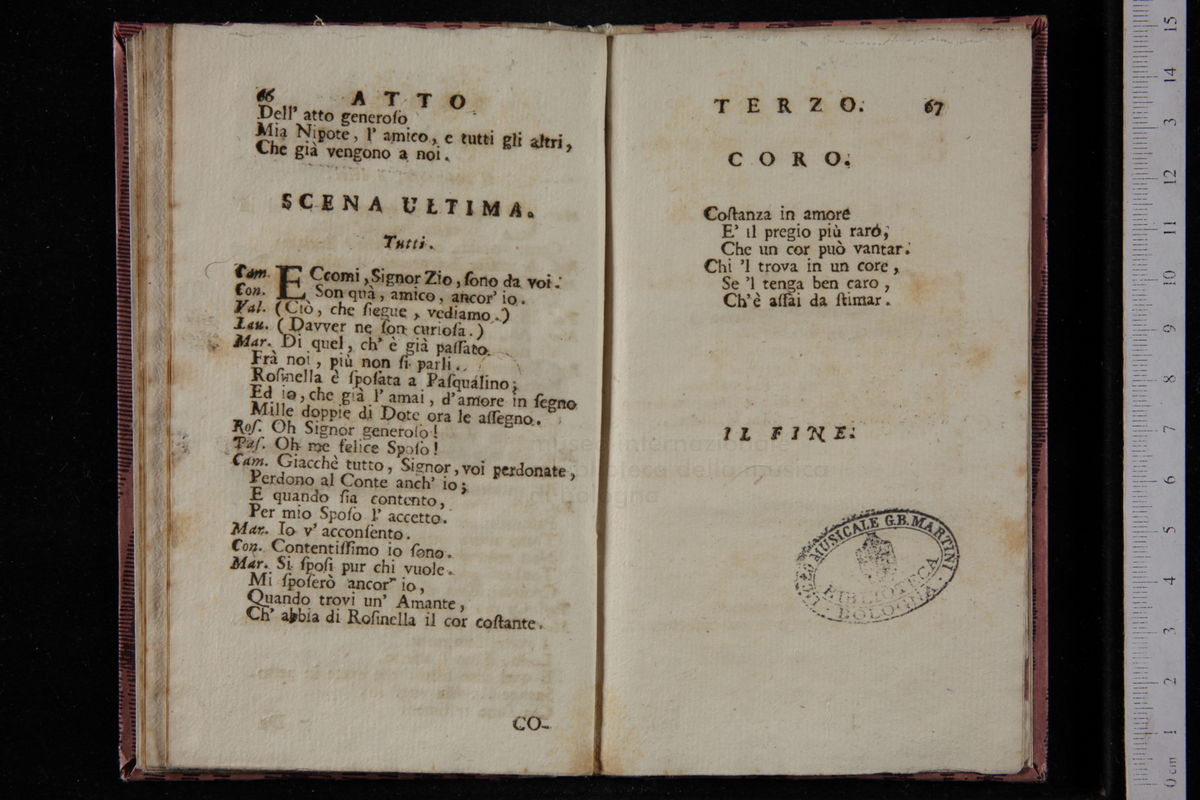 66 ATTO
Dell' atto generoſo
Mia Nipote, l' amico, e tutti gli altri,
Che già vengono a noi.
SCENA ULTIMA.
Tutti.
Cam. ECcomi, Signor Zio, ſono da voi.
Con. Son quà, amico, ancor' io.
Val. (Ciò, che ſiegue, vediamo.)
Lau. (Davver ne ſon curioſa.)
Mar. Di quel, ch' è già paſſato
Frà noi, più non ſi parli.
Roſinella è ſpoſata a Paſqualino;
Ed io, che già l' amai, d'amore in ſegno
Mille doppie di Dote ora le aſſegno.
Roſ. Oh Signor generoſo!
Paſ. Oh me felice Spoſo!
Cam. Giacchè tutto, Signor, voi perdonate,
Perdono al Conte anch' io;
E quando ſia contento,
Per mio Spoſo l' accetto.
Mar. Io v' acconſento.
Con. Contentiſſimo io ſono.
Mar. Si ſpoſi pur chi vuole.
Mi ſpoſerò ancor' io,
Quando trovi un' Amante,
Ch' abbia di Roſinella il cor coſtante.
CO-
TERZO. 67
CORO.
Coſtanza in amore
E' il pregio più raro,
Che un cor può vantar.
Chi 'l trova in un core,
Se 'l tenga ben caro,
Ch'è aſſai da ſtimar.
IL FINE.
museo internazionale
e biblioteca della musica
di bologna
LICEO MUSICALE G.B. MARTINI
BIBLIOTECA
BOLOGNA
0 cm 1 2 3 4 5 6 7 8 9 10 11 12 3 14 15